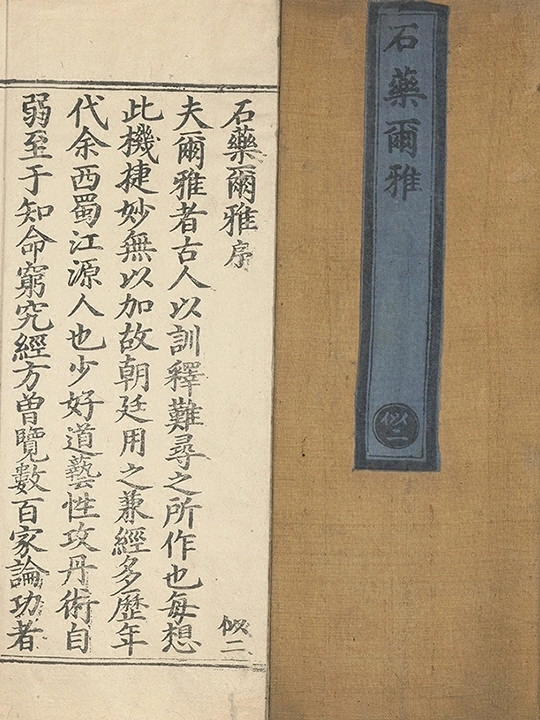 石藥爾雅
似二
石藥爾雅序
似二
夫爾雅者古人以訓釋難尋之所作也每想
此機捷妙無以加故朝廷用之兼經多歷年
代余西蜀江源人也少好道藝性攻丹術自
弱至于知命窮究經方曾覽數百家論功者